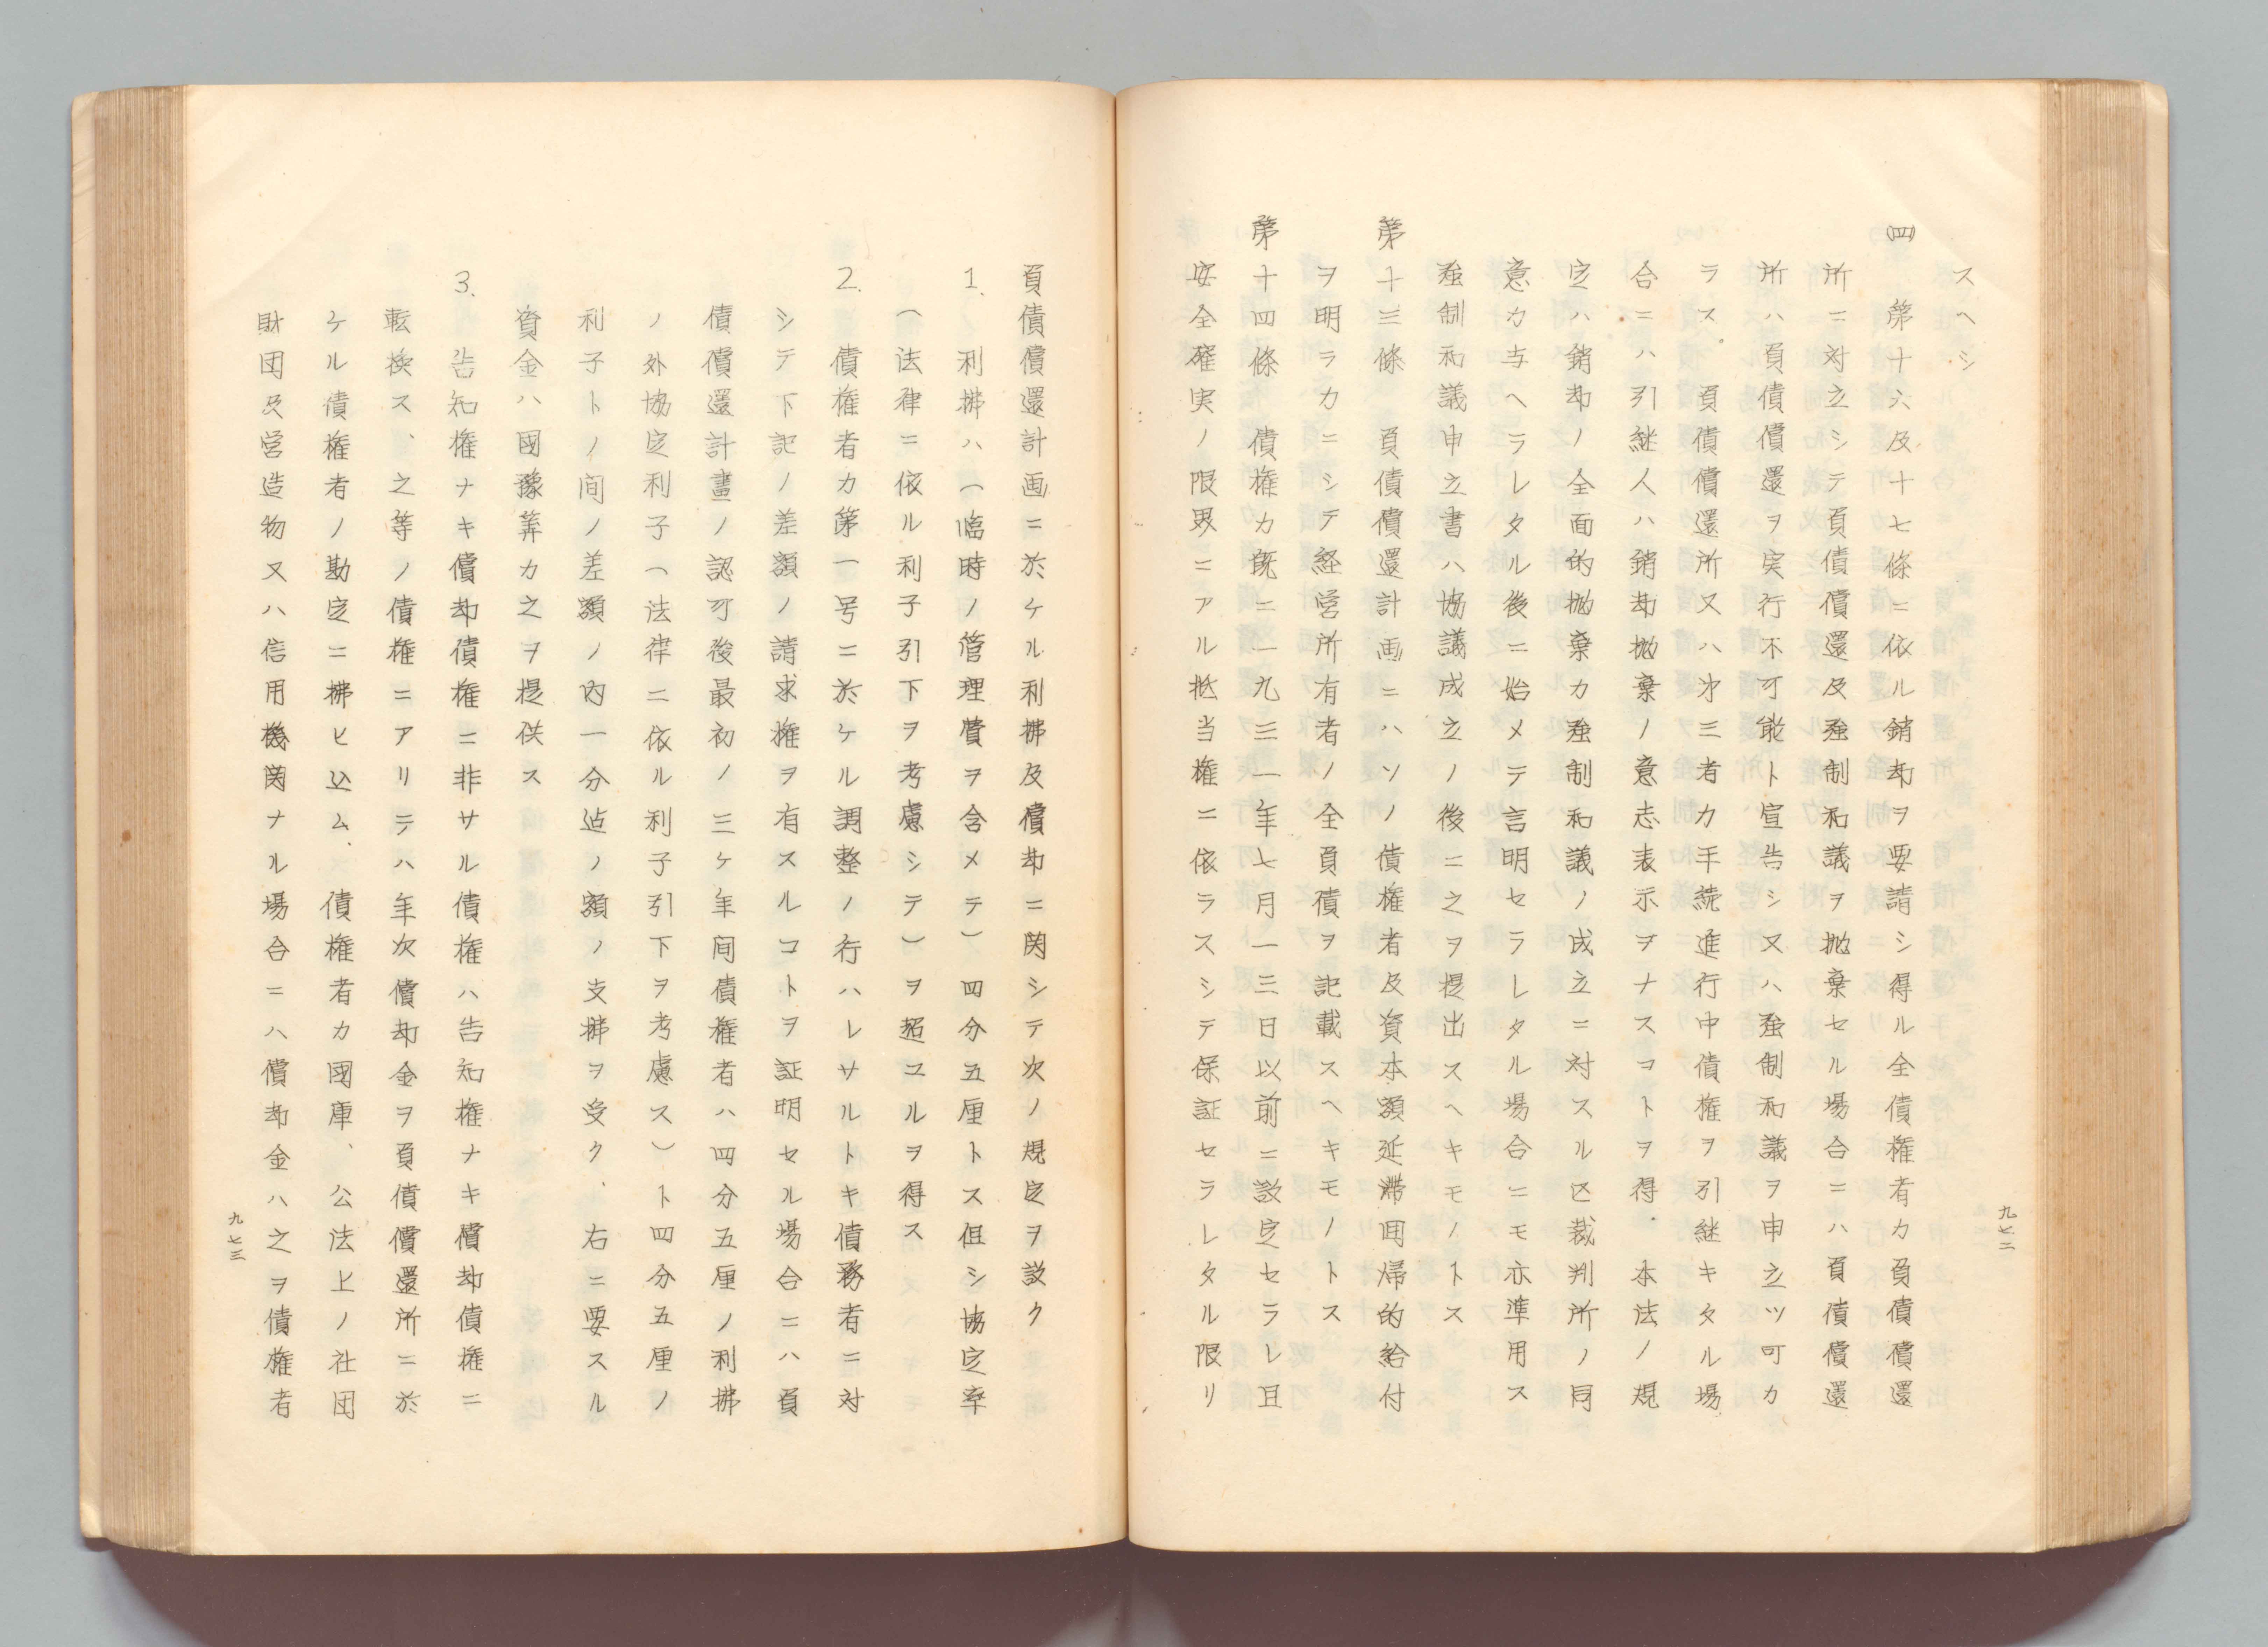 スヘシ
(四) 第十六及十七條ニ依ル銷却ヲ要請シ得ル全債権者カ負債償還
所ニ対立シテ負債償還及强制和議ヲ抛棄セル場合ニハ負債償還
所ハ負債償還ヲ実行不可能ト宣告シ又ハ强制和議ヲ申立ツ可カ
ラス. 負債償還所又ハ才三者カ手続進行中債権ヲ引継キタル場
合ニハ引継人ハ銷却抛棄ノ意志表示ヲナスコトヲ得. 本法ノ規
定ハ銷却ノ全面的抛棄カ强制和議ノ成立ニ対スル区裁判所ノ同
意カ与ヘラレタル後ニ始メテ言明セラレタル場合ニモ亦準用ス
强制和議申立書ハ協議成立ノ後ニ之ヲ提出スヘキモノトス
第十三條 負債償還計画ニハソノ債権者及資本額延滞回帰的給付
ヲ明ラカニシテ経営所有者ノ全負債ヲ記載スヘキモノトス
第十四條 債権カ既ニ一九三一年七月一三日以前ニ設定セラレ且
安全確実ノ限界ニアル抵当権ニ依ラスシテ保証セラレタル限リ
九七二
負債償還計画ニ於ケル利拂及償却ニ関シテ次ノ規定ヲ設ク
1. 利拂ハ(臨時ノ管理費ヲ含メテ)四分五厘トス但シ協定率
(法律ニ依ル利子引下ヲ考慮シテ)ヲ超ユルヲ得ス
2. 債権者カ第一号ニ於ケル調整ノ行ハレサルトキ債務者ニ対
シテ下記ノ差額ノ請求権ヲ有スルコトヲ証明セル場合ニハ負
債償還計畫ノ認可後最初ノ三ケ年间債権者ハ四分五厘ノ利拂
ノ外協定利子(法律ニ依ル利子引下ヲ考慮ス)ト四分五厘ノ
利子トノ间ノ差額ノ内一分迠ノ額ノ支拂ヲ受ク、右ニ要スル
資金ハ國豫算カ之ヲ提供ス
3. 告知権ナキ償却債権ニ非サル債権ハ告知権ナキ償却債権ニ
転換ス、之等ノ債権ニアリテハ年次償却金ヲ負債償還所ニ於
ケル債権者ノ勘定ニ拂ヒ込ム、債権者カ國庫、公法上ノ社団
財団及営造物又ハ信用機関ナル場合ニハ償却金ハ之ヲ債権者
九七三